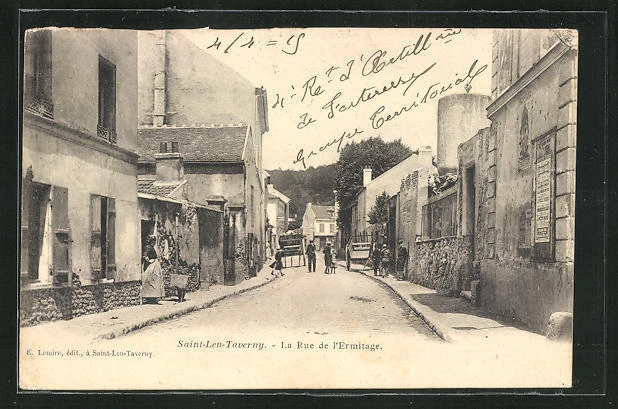 4 - 4 = 15
Rt d'Artillerie
de forteresse
groupe territorial
Saint-Leu-Taverny. - La Rue de l'Ermitage.
E. Lemire, édit., à Saint-Leu-Taverny.